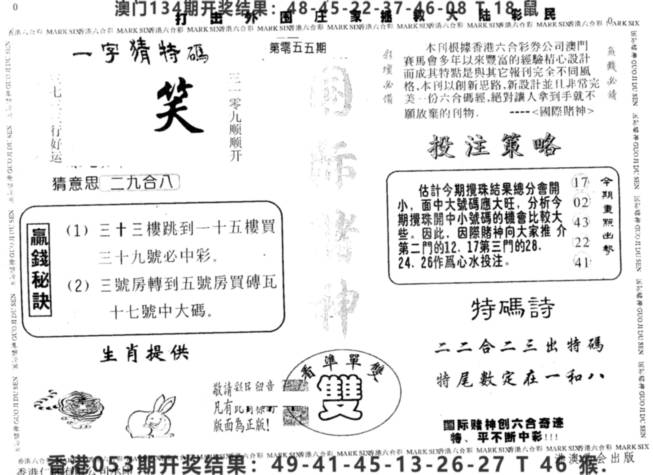 澳门134期开奖结果：48-45-22-37-46-08 T 18 鼠
打击外围庄家拯救大陆彩民
一字猜特碼
第零五五期
笑
三一〇九顺顺开
行好运
猜意思 二九合八
本刊根據香港六合彩券公司澳門
賽馬會多年以來豐富的經驗精心設計
而成其特點是與其它報刊完全不同風
格,本刊以創新思路,新設計並且非常完
美一份六合碼經,絕對讓人拿到手就不
願放棄的刊物. ----<國際賭神>
國際賭神
投注策略
估計今期攪珠結果總分會開
小，面中大號碼應大旺，分析今
期攪珠開中小號碼的機會比較大
些。因此，因際賭神向大家推介
第二門的12．17第三門的28．
24．26作爲心水投注。
今期重點出擊
17
02
43
22
41
贏錢秘訣
(1) 三十三樓跳到一十五樓買
三十九號必中彩.
(2) 三號房轉到五號房買磚瓦
十七號中大碼.
特碼詩
二二合二三出特碼
特尾數定在一和八
生肖提供
看準單雙
雙
版面為正版!
国际赌神创六合奇迹
特、平不断中彩!!!
香港053期开奖结果：49-41-45-13-26-27 T 46 猴